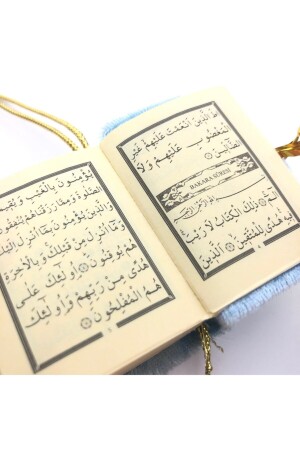 طَ الَّذِينَ اَنْعَمْتَ عَلَيْهِمْ غَيْرِ
الْمَغْضُوبِ عَلَيْهِمْ وَلَا
الضَّٓالِّينَ
BAKARA SÛRESİ
بِسْمِ اللهِ الرَّحْمٰنِ الرَّحِيمِ
الٓمٓ ذٰلِكَ الْكِتَابُ لَا رَيْبَ
فِيهِ هُدًى لِلْمُتَّقِينَ اَلَّذِينَ
يُؤْمِنُونَ بِالْغَيْبِ وَيُقِيـ
الصَّلٰوةَ وَمِمَّا رَزَقْنَاهُمْ يُنْفِقُونَ
وَالَّذِينَ يُؤْمِنُونَ بِمَٓا اُنْزِلَ اِلَيْكَ
وَمَٓا اُنْزِلَ مِنْ قَبْلِكَ وَبِالْاٰخِرَةِ
هُمْ يُوقِنُونَ اُو۬لٰٓئِكَ عَلٰى
هُدًى مِنْ رَبِّهِمْ وَاُو۬لٰٓئِكَ
هُمُ الْمُفْلِحُونَ